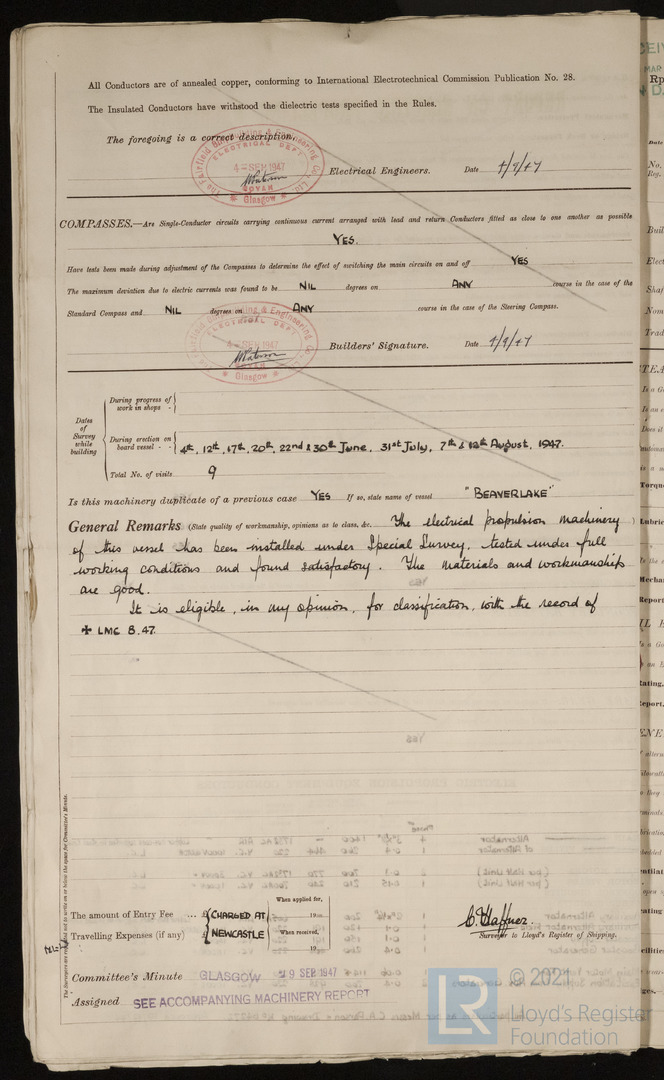 All Conductors are of annealed copper, conforming to International Electrotechnical Commission Publication No. 28.
The Insulated Conductors have withstood the dielectric tests specified in the Rules.
The foregoing is a correct description.
The Fairfield Shipbuilding & Engineering Co., Ltd.
ELECTRICAL DEPT
4 - SEP 1947
GOVAN
Glasgow
Electrical Engineers. Date 4/9/47
COMPASSES.—Are Single-Conductor circuits carrying continuous current arranged with lead and return Conductors fitted as close to one another as possible
YES.
Have tests been made during adjustment of the Compasses to determine the effect of switching the main circuits on and off YES
The maximum deviation due to electric currents was found to be NIL degrees on ANY course in the case of the
Standard Compass and NIL degrees on ANY course in the case of the Steering Compass.
ELECTRICAL DEPT
4 - SEP 1947
Glasgow
Builders' Signature. Date 4/9/47
Dates of Survey while building
During progress of work in shops - -
During erection on board vessel - - 4th, 12th, 17th, 20th, 22nd & 30th June, 31st July, 7th & 12th August, 1947.
Total No. of visits 9
Is this machinery duplicate of a previous case YES If so, state name of vessel "BEAVERLAKE"
General Remarks (State quality of workmanship, opinions as to class, &c. The electrical propulsion machinery
of this vessel has been installed under Special Survey, tested under full
working conditions and found satisfactory. The materials and workmanship
are good.
It is eligible, in my opinion, for classification, with the record of
✠ LMC 8.47.
The Surveyors are requested not to write on or below the space for Committee's Minute.
The amount of Entry Fee ... £ CHARGED AT When applied for, 19
Travelling Expenses (if any) £ NEWCASTLE When received, 19
C. Haffner.
Surveyor to Lloyd's Register of Shipping.
Committee's Minute GLASGOW 9 SEP 1947
Assigned SEE ACCOMPANYING MACHINERY REPORT
LR
© 2021
Lloyd's Register
Foundation